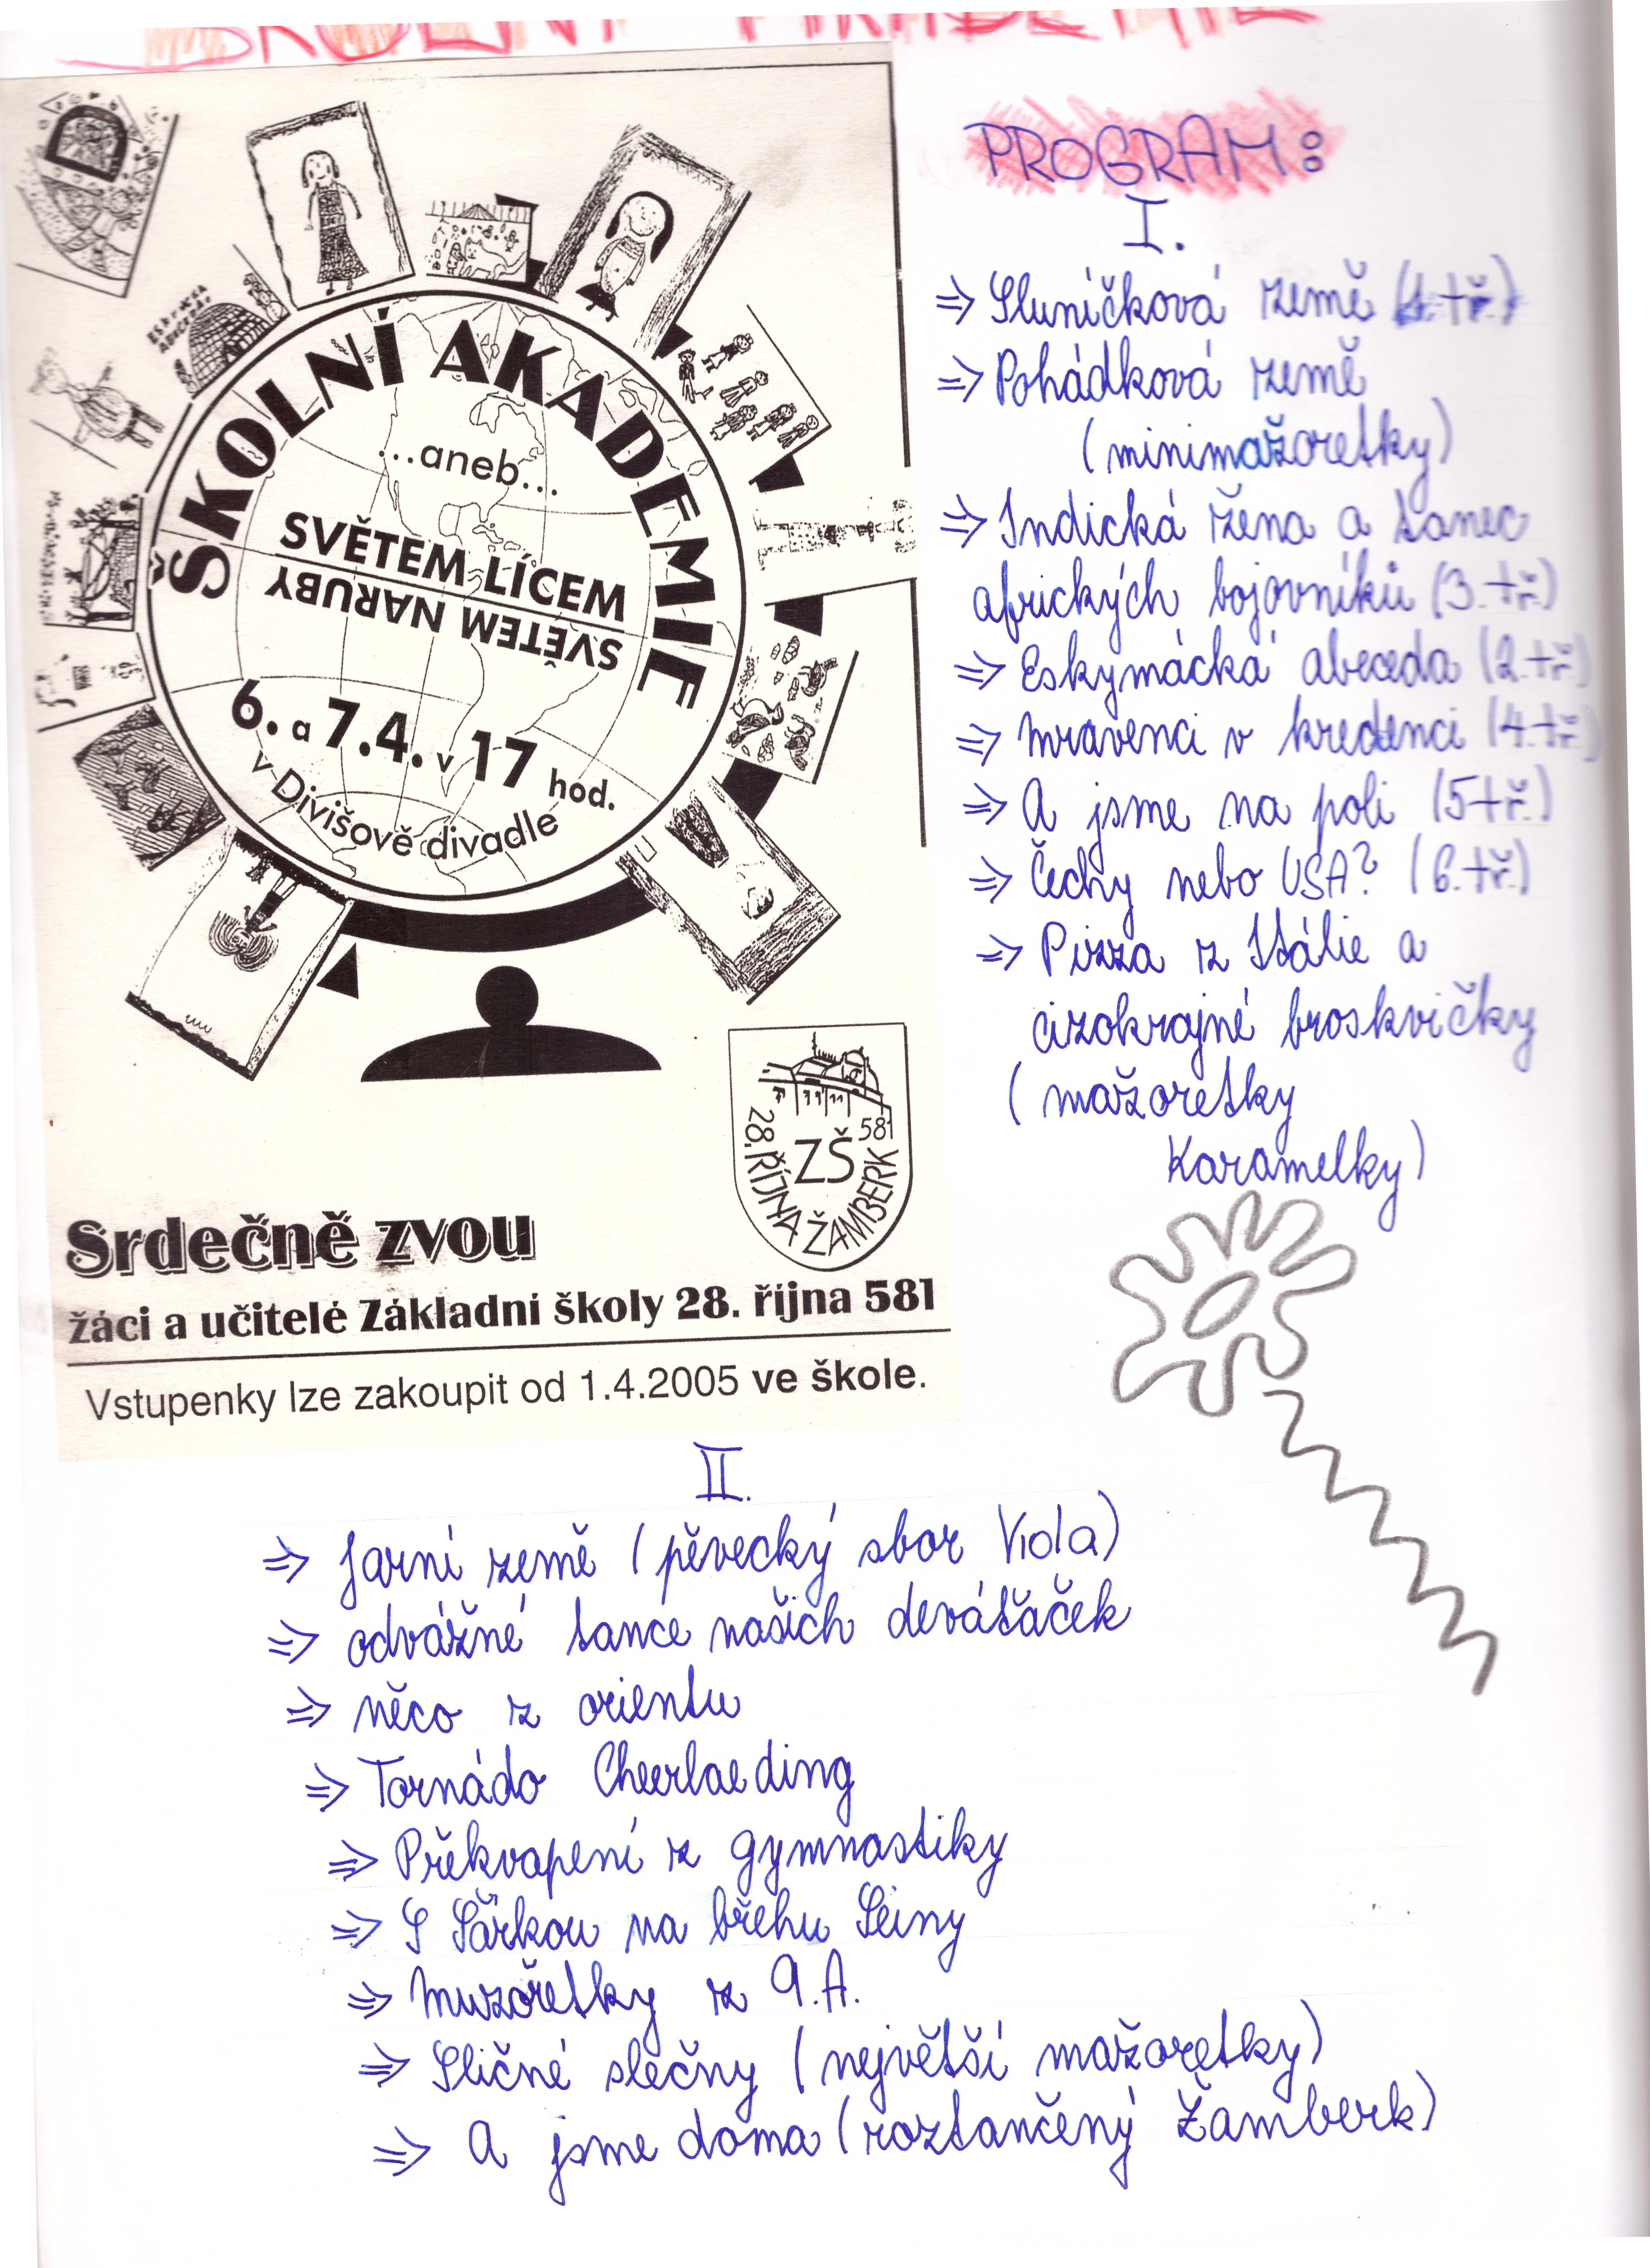 ŠKOLNÍ AKADEMIE
ŠKOLNÍ AKADEMIE
...aneb...
SVĚTEM LÍCEM
SVĚTEM NARUBY
6. a 7.4. v 17 hod.
v Divišově divadle
ESKYMÁCKÁ
ABECEDA
28. ŘÍJNA
ZŠ
581
ŽAMBERK
Srdečně zvou
žáci a učitelé Základní školy 28. října 581
Vstupenky lze zakoupit od 1.4.2005 ve škole.
PROGRAM:
I.
⇒ Sluníčková země (1. tř.)
⇒ Pohádková země
(minimažoretky)
⇒ Indická žena a tanec
afrických bojovníků (3. tř.)
⇒ Eskymácká abeceda (2. tř.)
⇒ Mravenci v kredenci (4. tř.)
⇒ A jsme na poli (5 tř.)
⇒ Čechy nebo USA? (6. tř.)
⇒ Pizza z Itálie a
cizokrajné broskvičky
(mažoretky
Karamelky)
II.
⇒ Jarní země (pěvecký sbor Viola)
⇒ odvážné tance našich deváťaček
⇒ něco z orientu
⇒ Tornádo Cheerlaeding
⇒ Překvapení z gymnastiky
⇒ S Šárkou na břehu Seiny
⇒ Muzoretky z 9.A.
⇒ Sličné slečny (největší mažoretky)
⇒ A jsme doma (roztančený Žamberk)